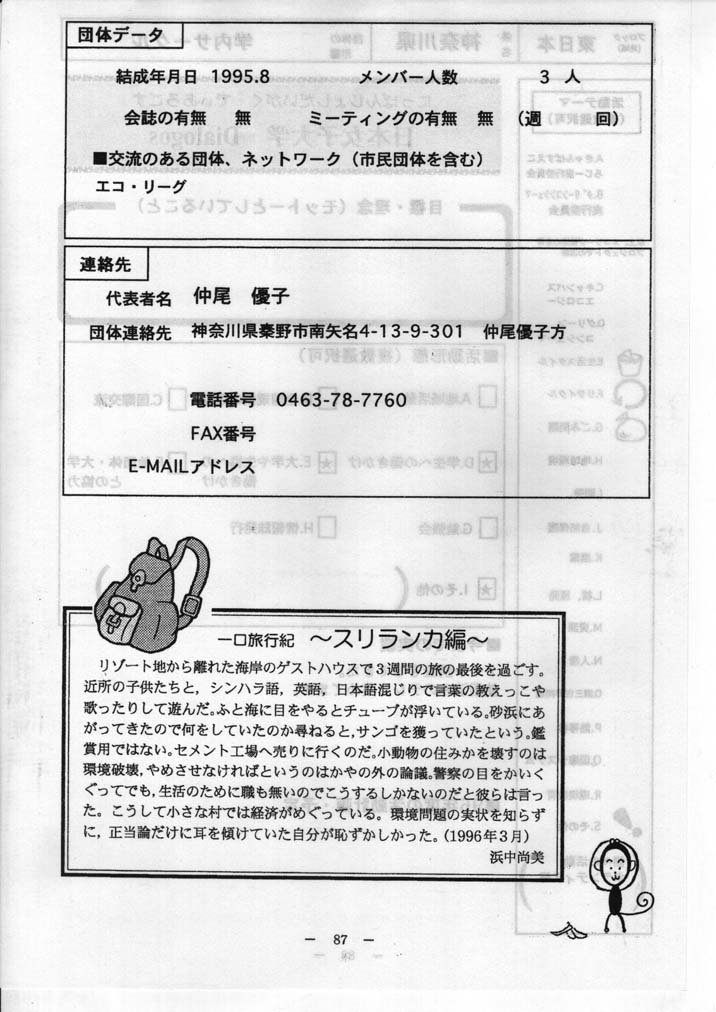 団体データ
結成年月日 1995.8 メンバー人数 3 人
会誌の有無 無 ミーティングの有無 無 (週 回)
■交流のある団体、ネットワーク(市民団体を含む)
エコ・リーグ
連絡先
代表者名 仲尾 優子
団体連絡先 神奈川県秦野市南矢名4-13-9-301 仲尾優子方
電話番号 0463-78-7760
FAX番号
E-MAILアドレス
一口旅行紀 〜スリランカ編〜
リゾート地から離れた海岸のゲストハウスで3週間の旅の最後を過ごす。
近所の子供たちと,シンハラ語,英語,日本語混じりで言葉の教えっこや
歌ったりして遊んだ。ふと海に目をやるとチューブが浮いている。砂浜にあ
がってきたので何をしていたのか尋ねると,サンゴを獲っていたという。鑑
賞用ではない。セメント工場へ売りに行くのだ。小動物の住みかを壊すのは
環境破壊,やめさせなければというのはかやの外の論議。警察の目をかいく
ぐってでも,生活のために職も無いのでこうするしかないのだと彼らは言っ
た。こうして小さな村では経済がめぐっている。環境問題の実状を知らず
に,正当論だけに耳を傾けていた自分が恥ずかしかった。(1996年3月)
浜中尚美
— 87 —